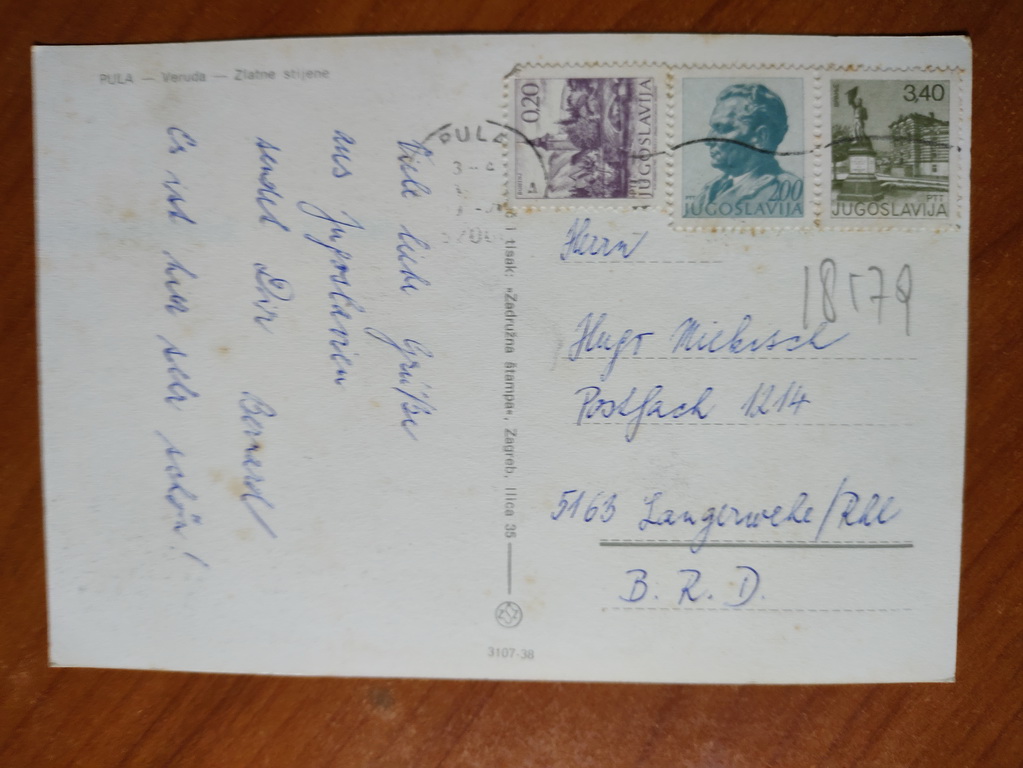 PULA — Veruda — Zlatne stijene
Viele liebe Grüße
aus Jugoslavien
sendet Dir Bernard
Es ist hier sehr schön!
PULA
0,20
JUGOSLAVIJA
2,00
JUGOSLAVIJA
3,40
PTT
JUGOSLAVIJA
i tisak: »Zadružna štampa«, Zagreb, Ilica 35
3107-38
18179
Herrn
Hugo
Postfach 1214
5163 Langerwehe/Rhl
B. R. D.